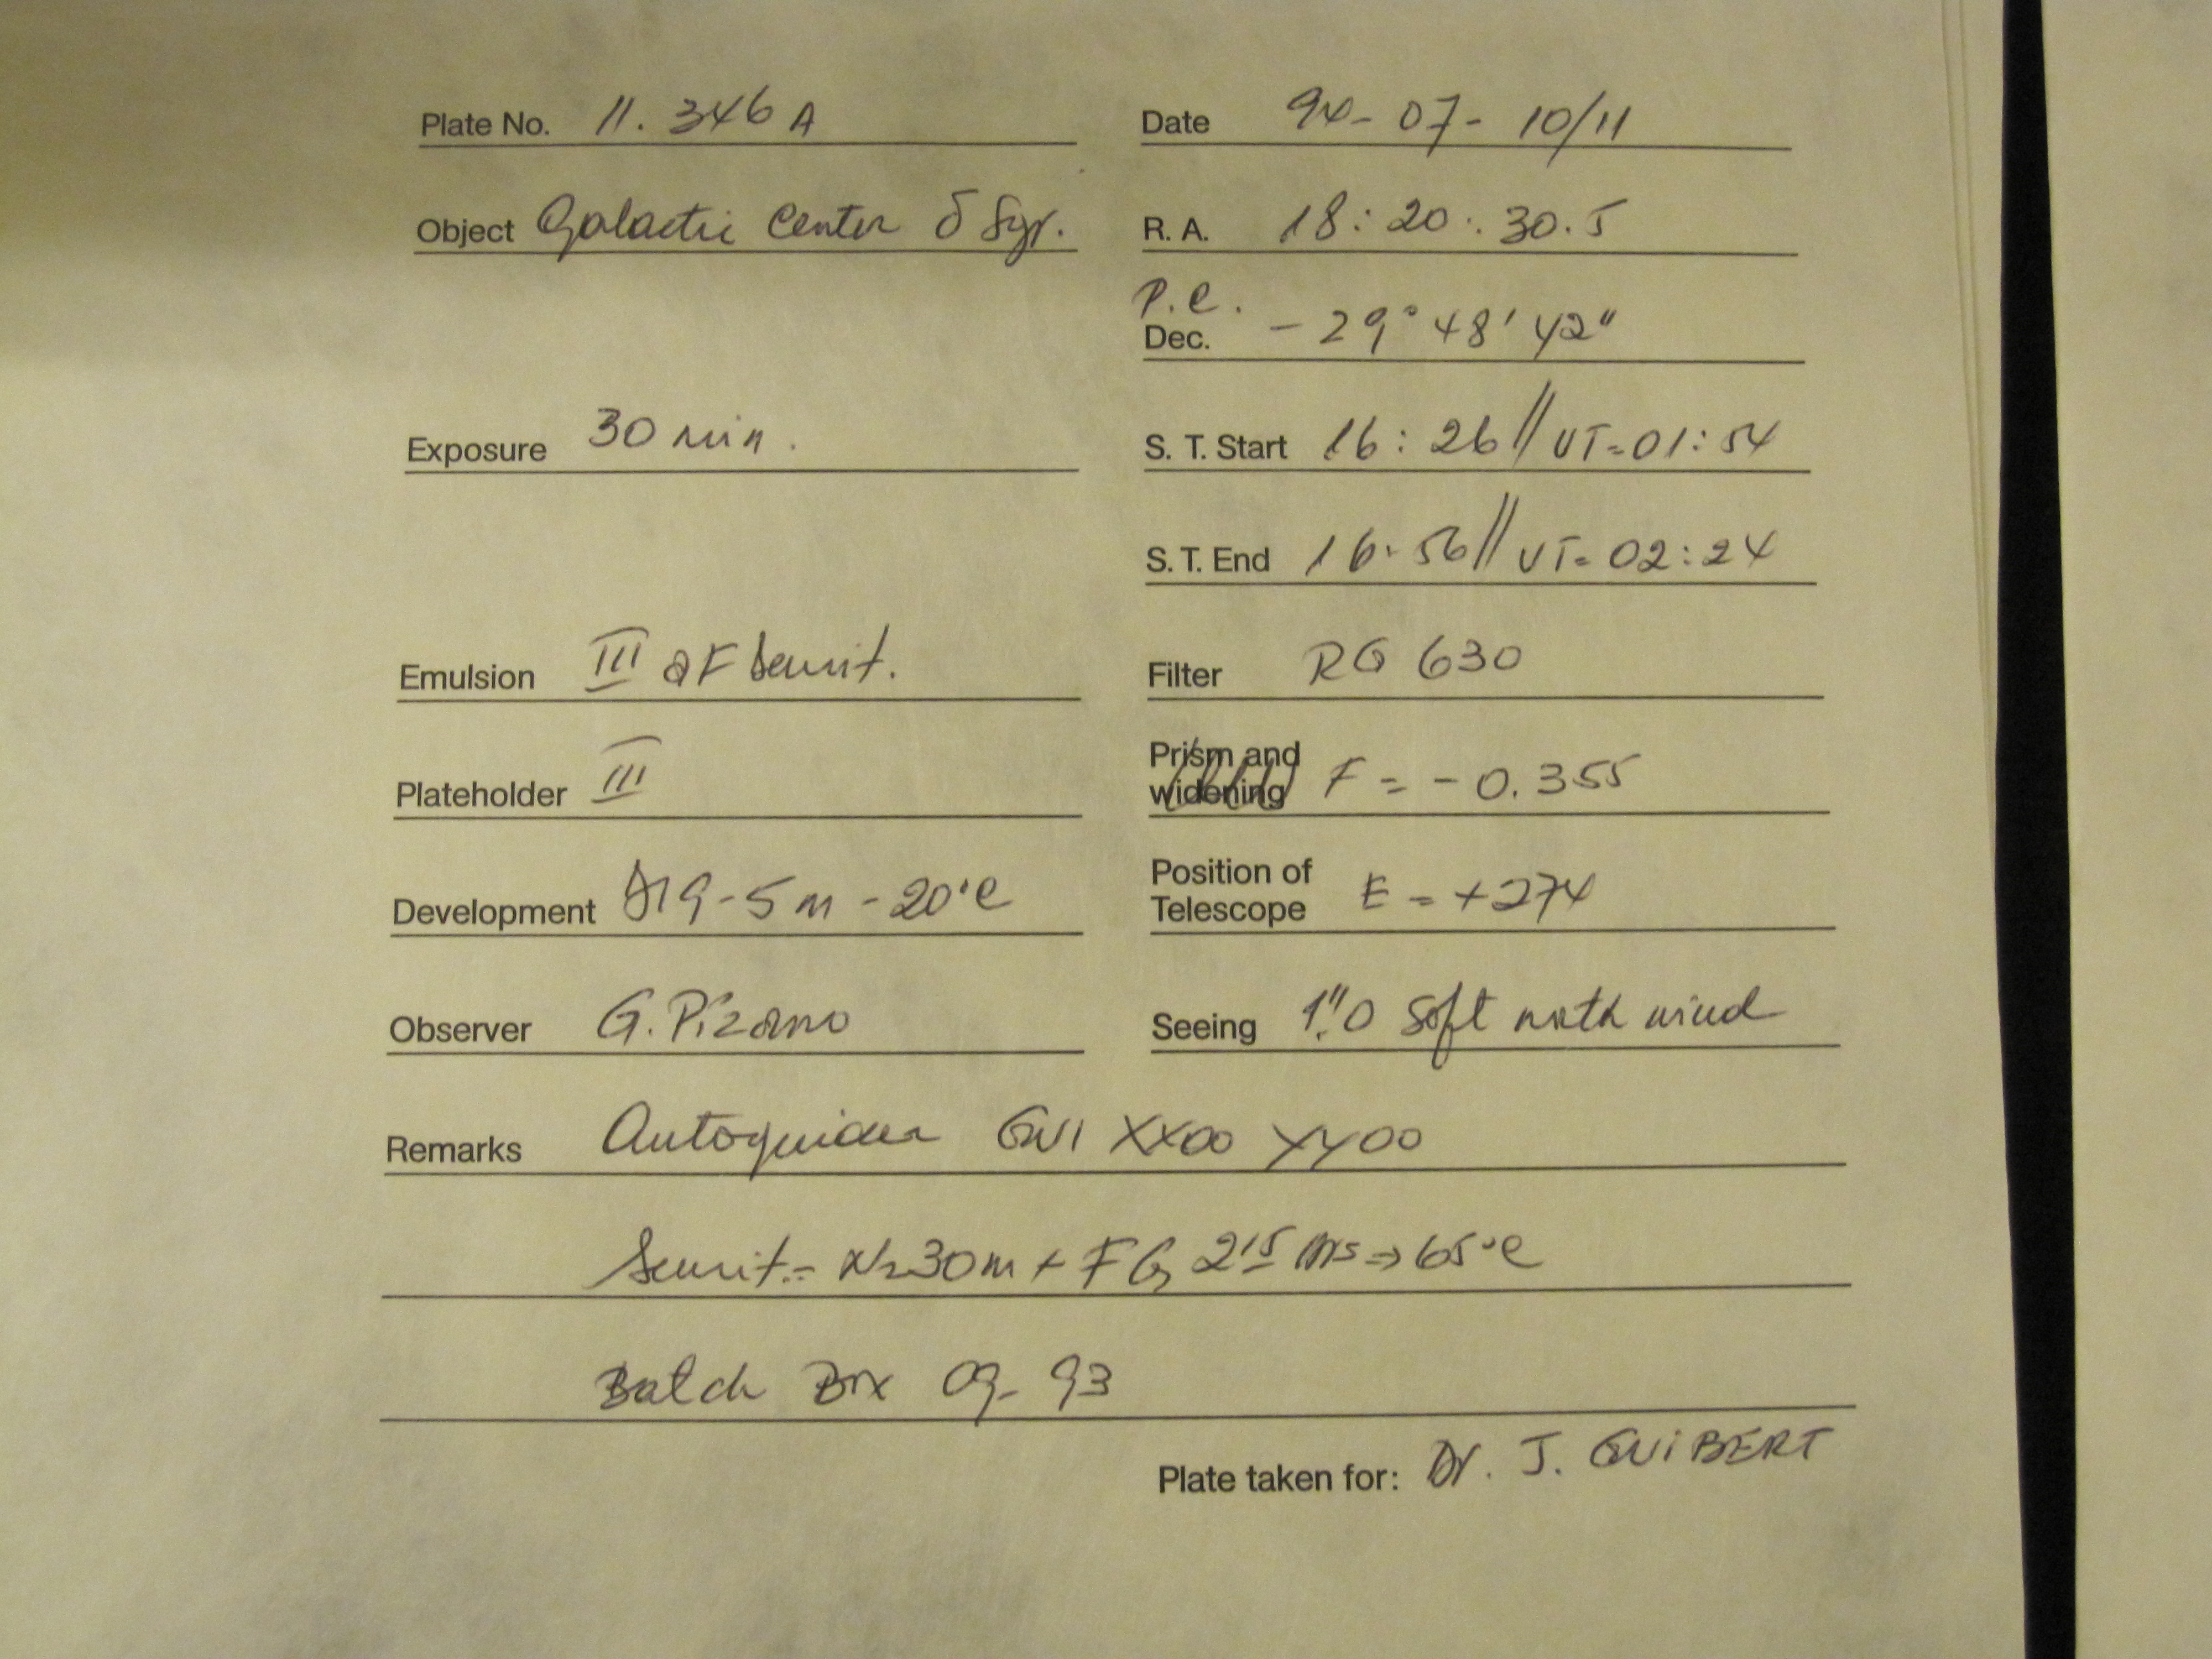 Plate No. 11.346A
Date 94-07-10/11
Object Galactic Center δ Sgr.
R. A. 18:20:30.5
P.C.
Dec. -29°48'42"
Exposure 30 min.
S. T. Start 16:26 // UT=01:54
S. T. End 16:56 // UT=02:24
Emulsion III aF Sensit.
Filter RG 630
Plateholder III
Prism and widening F = -0.355
Development D19-5m-20°C
Position of Telescope E = +274
Observer G. Pizarro
Seeing 1".0 Soft north wind
Remarks Autoguider GUI XX00 YY00
Sensit.= N2 30m + FG 2 15 hrs => 65°C
Batch Box 09-93
Plate taken for: Dr. J. GUiBERT